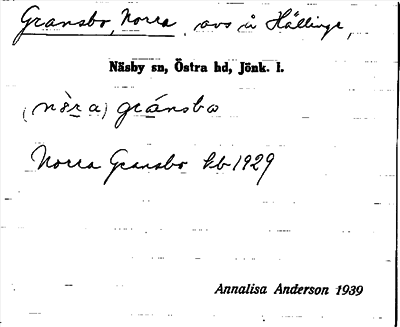 Gransbo, Norra, avs å Hällinge,
Näsby sn, Östra hd, Jönk. l.
(nò̀r̲a) gránsbo
Norra Gransbo kb 1929
Annalisa Anderson 1939